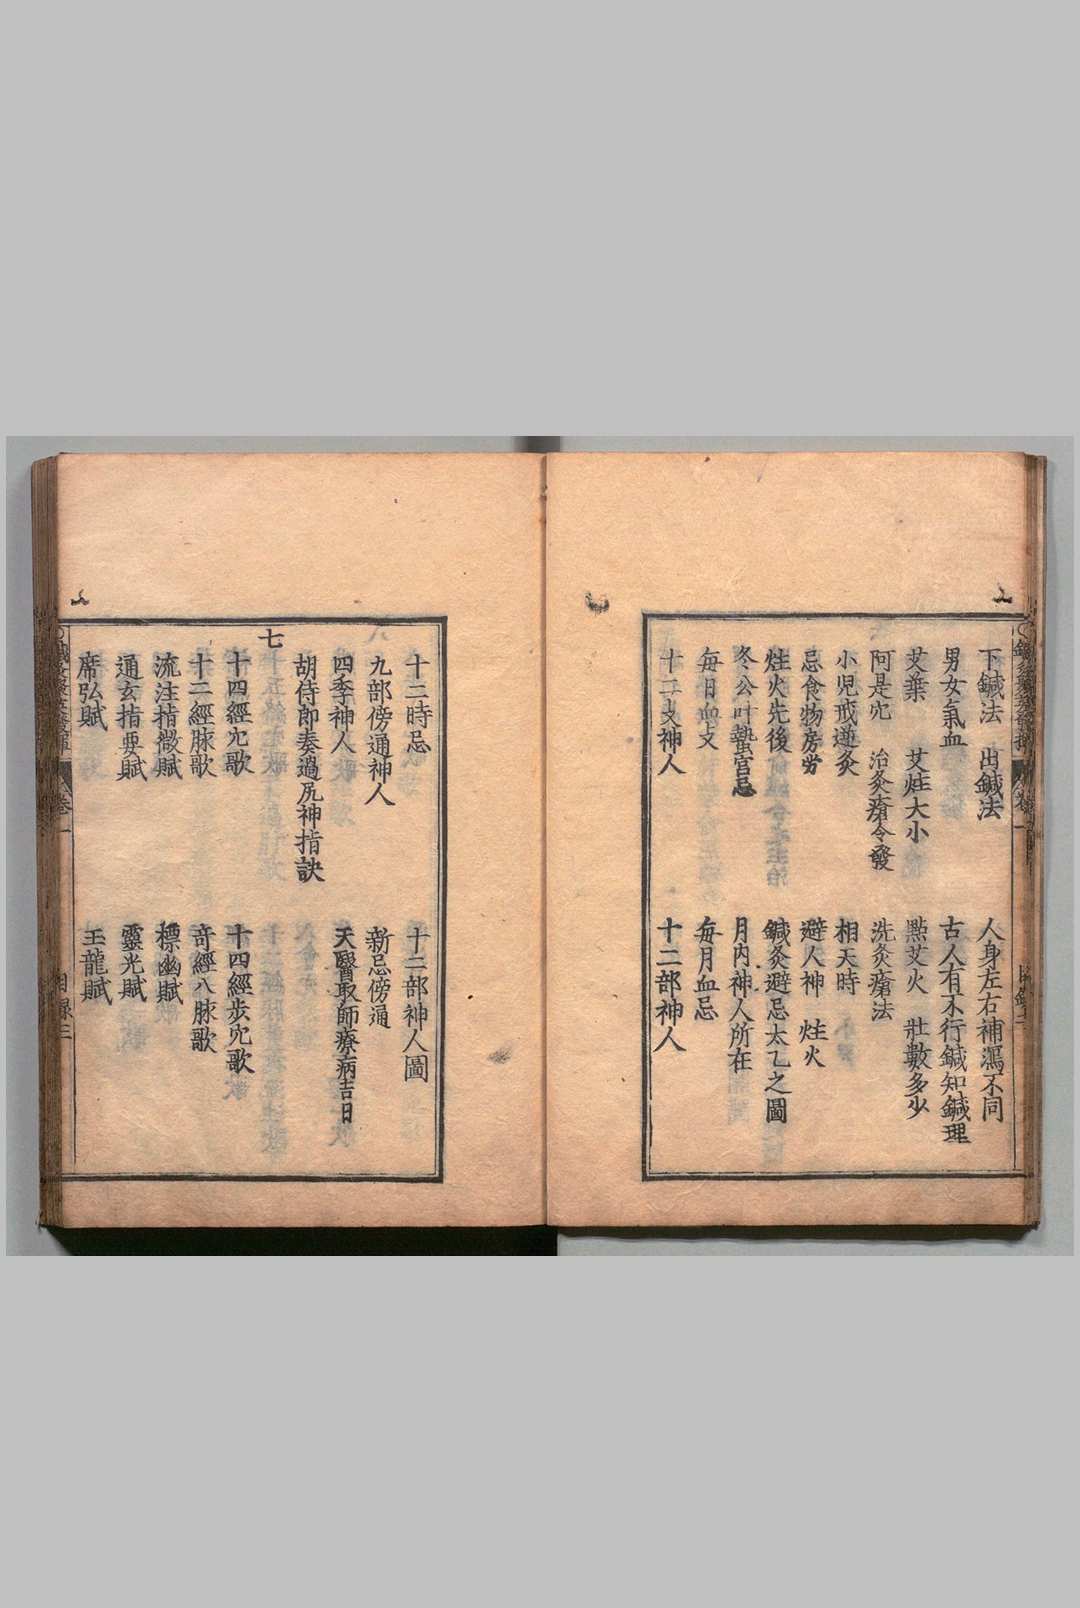 下鍼法 出鍼法 人身左右補瀉不同
男女氣血 古人有不行鍼知鍼理
艾葉 艾炷大小 㸃艾火 壯數多少
阿是穴 治灸瘡令發 洗灸瘡法
小兒戒逆灸 相天時
忌食物房労 避人神 炷火
炷火先後 鍼灸避忌太乙之圖
冬至叶蟄宮忌 月內神人所在
每日血支 每月血忌
十二支神人 十二部神人
十二時忌 十二部神人圖
九部傍通神人 新忌傍通
四季神人 天醫取師療病吉日
胡侍郎奏過尻神指訣
七
十四經穴歌 十四經步穴歌
十二經脉歌 奇經八脉歌
流注指微賦 標幽賦
通玄指要賦 靈光賦
席弘賦 玉龍賦
卷一 目錄三